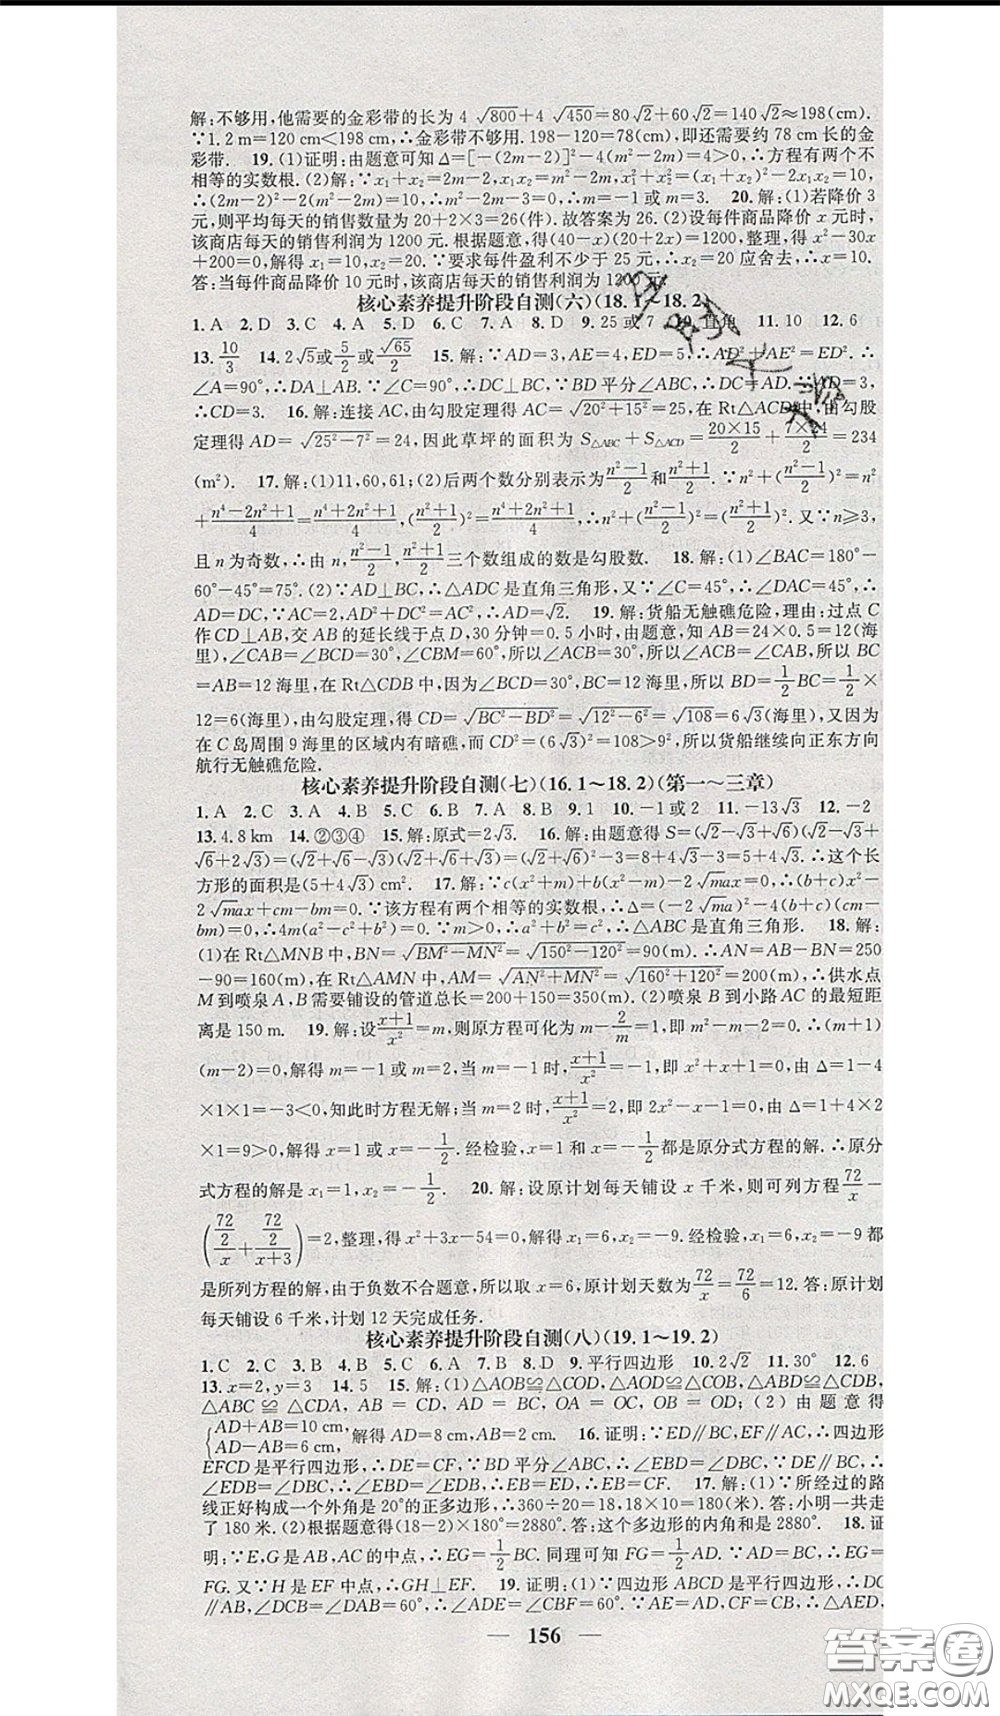 解:不够用,他需要的金彩带的长为 4√800+4√450=80√2+60√2=140√2≈198(cm).
∵1.2 m=120 cm<198 cm,∴金彩带不够用.198-120=78(cm),即还需要约 78 cm 长的金
彩带. 19.(1)证明:由题意可知 Δ=[-(2m-2)]²-4(m²-2m)=4>0,∴方程有两个不
相等的实数根.(2)解:∵x₁+x₂=2m-2,x₁x₂=m²-2m,x₁²+x₂²=(x₁+x₂)²-2x₁x₂=10,
∴(2m-2)²-2(m²-2m)=10,∴m²-2m-3=0,∴m=-1或m=3. 20.解:(1)若降价 3
元,则平均每天的销售数量为 20+2×3=26(件).故答案为 26.(2)设每件商品降价 x 元时,
该商店每天的销售利润为 1200 元.根据题意,得(40-x)(20+2x)=1200,整理,得 x²-30x
+200=0,解得x₁=10,x₂=20.∵要求每件盈利不少于 25 元,∴x₂=20应舍去,∴x=10.
答:当每件商品降价 10 元时,该商店每天的销售利润为 1200 元.
核心素养提升阶段自测(六)(18.1~18.2)
1.A 2.D 3.C 4.A 5.D 6.C 7.A 8.D 9.25或7 10.直角 11.10 12.6
13.10/3 14.2√5或5/2或√65/2 15.解:∵AD=3,AE=4,ED=5,∴AD²+AE²=ED².∴
∠A=90°,∴DA⊥AB.∵∠C=90°,∴DC⊥BC,∵BD平分∠ABC,∴DC=AD.∵AD=3,
∴CD=3. 16.解:连接 AC,由勾股定理得 AC=√(20²+15²)=25,在 Rt△ACD中,由勾股
定理得 AD=√(25²-7²)=24,因此草坪的面积为 S△ABC+S△ACD=20×15/2+7×24/2=234
(m²). 17.解:(1)11,60,61;(2)后两个数分别表示为(n²-1)/2和(n²+1)/2.∵n²+((n²-1)/2)²=n²
+(n⁴-2n²+1)/4=(n⁴+2n²+1)/4,((n²+1)/2)²=(n⁴+2n²+1)/4,∴n²+((n²-1)/2)²=((n²+1)/2)².又∵n≥3,
且 n 为奇数,∴由 n,(n²-1)/2,(n²+1)/2三个数组成的数是勾股数. 18.解:(1)∠BAC=180°-
60°-45°=75°.(2)∵AD⊥BC,∴△ADC是直角三角形,又∵∠C=45°,∴∠DAC=45°,∴
AD=DC,∵AC=2,AD²+DC²=AC²,∴AD=√2. 19.解:货船无触礁危险,理由:过点 C
作 CD⊥AB,交 AB 的延长线于点 D,30 分钟=0.5 小时,由题意,知 AB=24×0.5=12(海
里),∠CAB=∠BCD=30°,∠CBM=60°,所以∠ACB=30°,所以∠ACB=∠CAB,所以 BC
=AB=12 海里,在 Rt△CDB 中,因为∠BCD=30°,BC=12 海里,所以 BD=1/2BC=1/2×
12=6(海里),由勾股定理,得 CD=√(BC²-BD²)=√(12²-6²)=√108=6√3(海里),又因为
在 C 岛周围 9 海里的区域内有暗礁,而 CD²=(6√3)²=108>9²,所以货船继续向正东方向
航行无触礁危险.
核心素养提升阶段自测(七)(16.1~18.2)(第一~三章)
1.A 2.C 3.A 4.B 5.C 6.B 7.B 8.C 9.1 10.-1或2 11.-13√3 12.-2
13.4.8 km 14.②③④ 15.解:原式=2√3. 16.解:由题意得 S=(√2-√3+√6)(√3+
√6+2√3)=(√2+√6-√3)(√2+√6+√3)=(√2+√6)²-3=8+4√3-3=5+4√3.∴这个长
方形的面积是(5+4√3) cm². 17.解:∵c(x²+m)+b(x²-m)-2√max=0,∴(b+c)x²-
2√max+cm-bm=0.∵该方程有两个相等的实数根,∴Δ=(-2√ma)²-4(b+c)(cm-
bm)=0,∴4m(a²-c²+b²)=0.∵m>0,∴a²+b²=c²,∴△ABC是直角三角形. 18.解:
(1)在 Rt△MNB 中,BN=√(BM²-MN²)=√(150²-120²)=90(m).∴AN=AB-BN=250
-90=160(m).在 Rt△AMN 中,AM=√(AN²+MN²)=√(160²+120²)=200(m).∴供水点
M 到喷泉 A,B 需要铺设的管道总长=200+150=350(m).(2)喷泉 B 到小路 AC 的最短距
离是 150 m. 19.解:设(x+1)/x²=m,则原方程可化为 m-2/m=1,即 m²-m-2=0.∴(m+1)
(m-2)=0,解得 m=-1 或 m=2,当 m=-1 时,(x+1)/x²=-1,即 x²+x+1=0,由 Δ=1-4
×1×1=-3<0,知此时方程无解;当 m=2 时,(x+1)/x²=2,即 2x²-x-1=0,由 Δ=1+4×2
×1=9>0,解得 x=1 或 x=-1/2.经检验,x=1 和 x=-1/2都是原分式方程的解.∴原分
式方程的解是 x₁=1,x₂=-1/2. 20.解:设原计划每天铺设 x 千米,则可列方程72/x-
((72/2)/x+(72/2)/(x+3))=2,整理,得 x²+3x-54=0,解得 x₁=6,x₂=-9.经检验,x₁=6,x₂=-9 都
是所列方程的解,由于负数不合题意,所以取 x=6,原计划天数为72/x=72/6=12.答:原计划
每天铺设 6 千米,计划 12 天完成任务.
核心素养提升阶段自测(八)(19.1~19.2)
1.C 2.C 3.B 4.B 5.C 6.A 7.B 8.D 9.平行四边形 10.2√2 11.30° 12.6
13.x=2,y=3 14.5 15.解:(1)△AOB≌△COD,△AOD≌△COB,△ABD≌△CDB,
△ABC≌△CDA,AB=CD,AD=BC,OA=OC,OB=OD;(2)由题意得
{AD+AB=10 cm, AD-AB=6 cm,解得 AD=8 cm,AB=2 cm. 16.证明:∵ED∥BC,EF∥AC,∴四边形
EFCD 是平行四边形,∴DE=CF.∵BD 平分∠ABC,∴∠EBD=∠DBC,∵DE∥BC,∴
∠EDB=∠DBC,∴∠EBD=∠EDB,∴EB=ED,∴EB=CF. 17.解:(1)∵所经过的路
线正好构成一个外角是 20°的正多边形,∴360÷20=18,18×10=180(米).答:小明一共走
了 180 米.(2)根据题意得(18-2)×180°=2880°.答:这个多边形的内角和是 2880°. 18.证
明:∵E,G 是 AB,AC 的中点,∴EG=1/2BC.同理可知 FG=1/2AD.∵AD=BC,∴EG=
FG.又∵H 是 EF 中点,∴GH⊥EF. 19.证明:(1)∵四边形 ABCD 是平行四边形,∴DC
∥AB,∠DCB=∠DAB=60°,∴∠ADE=∠CBF=60°.∵AE=AD,CF=CB,∴△AED,
— 156 —
答案圈
MXQE.COM